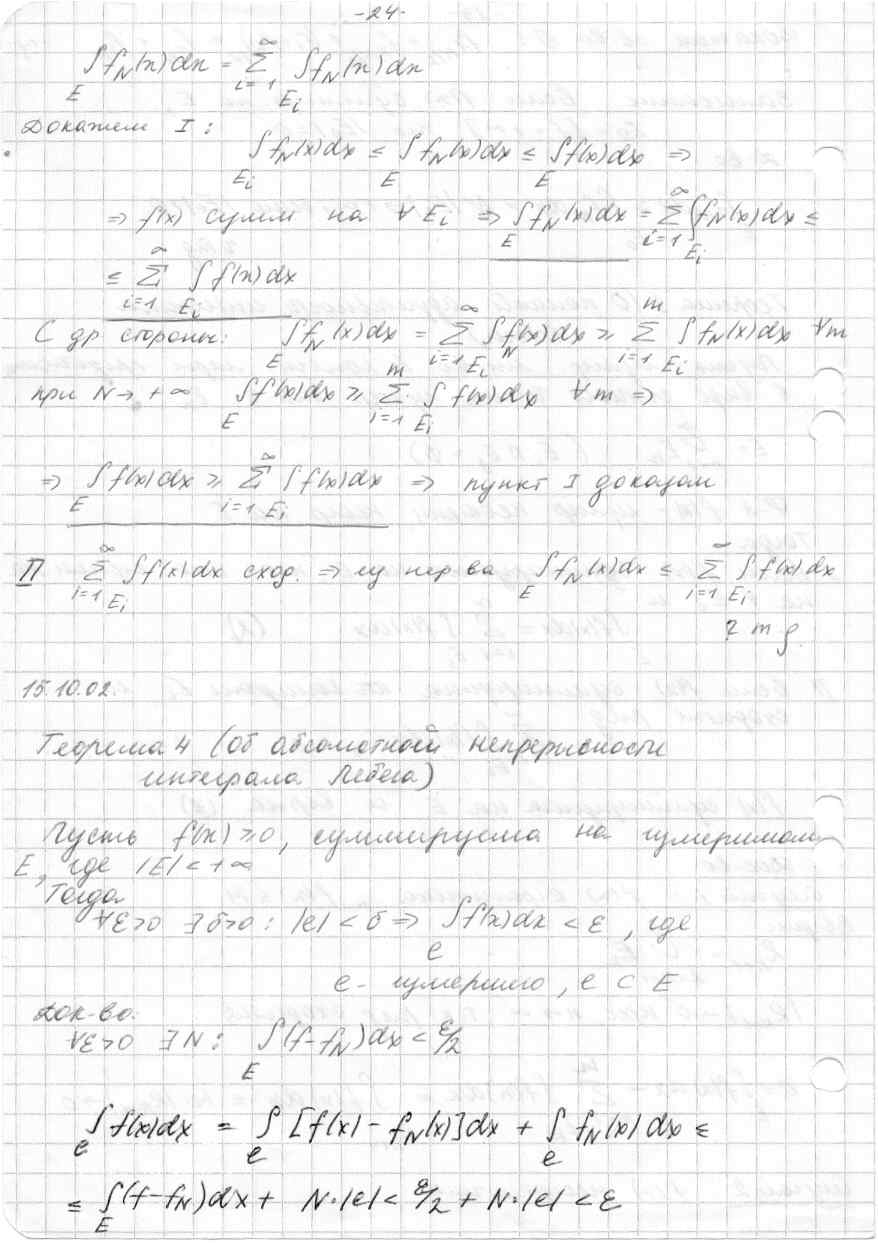 -24-
∫_E f_N(x)dx = ∑_{i=1}^∞ ∫_{E_i} f_N(x)dx
Докажем I:
∫_{E_i} f_N(x)dx ≤ ∫_E f_N(x)dx ≤ ∫_E f(x)dx ⇒
⇒ f(x) сумм на ∀ E_i ⇒ ∫_E f_N(x)dx = ∑_{i=1}^∞ ∫_{E_i} f_N(x)dx ≤
≤ ∑_{i=1}^∞ ∫_{E_i} f(x)dx
С др стороны: ∫_E f_N(x)dx = ∑_{i=1}^∞ ∫_{E_i} f_N(x)dx ≥ ∑_{i=1}^m ∫_{E_i} f_N(x)dx ∀m
при N→+∞ ∫_E f(x)dx ≥ ∑_{i=1}^m ∫_{E_i} f(x)dx ∀m ⇒
⇒ ∫_E f(x)dx ≥ ∑_{i=1}^∞ ∫_{E_i} f(x)dx ⇒ пункт I доказан
II ∑_{i=1}^∞ ∫_{E_i} f(x)dx сход. ⇒ из нер ва ∫_E f_N(x)dx ≤ ∑_{i=1}^∞ ∫_{E_i} f(x)dx
ч т д.
15.10.02.
Теорема 4 (Об абсолютной непрерывности
интеграла Лебега)
Пусть f(x) ≥ 0, суммируема на измеримом
E, где |E| < +∞
Тогда
∀ε>0 ∃δ>0: |e| < δ ⇒ ∫_e f(x)dx < ε, где
e - измеримо, e ⊂ E
Док-во:
∀ε>0 ∃N: ∫_E (f-f_N)dx < ε/2
∫_e f(x)dx = ∫_e [f(x) - f_N(x)]dx + ∫_e f_N(x)dx ≤
≤ ∫_E (f-f_N)dx + N·|e| < ε/2 + N·|e| < ε